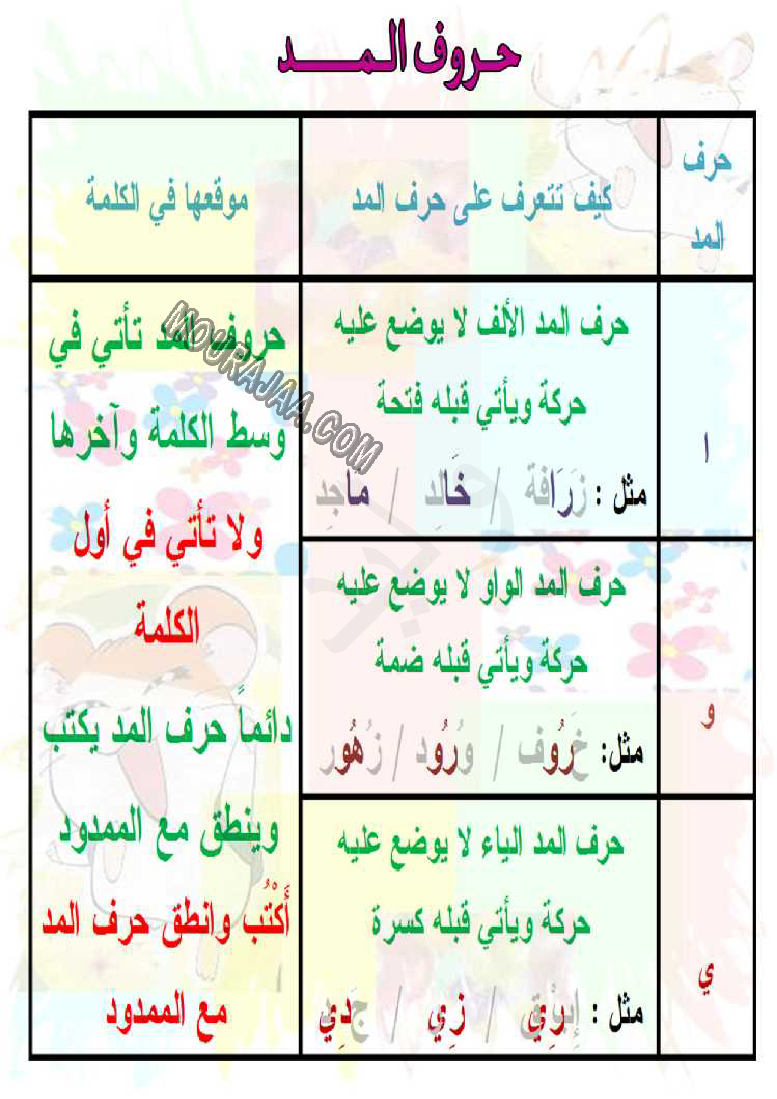 حروف المــــد
حرف
المد
كيف تتعرف على حرف المد
موقعها في الكلمة
ا
حرف المد الألف لا يوضع عليه
حركة ويأتي قبله فتحة
مثل : زَرَافة / خَالِد / ماجِد
و
حرف المد الواو لا يوضع عليه
حركة ويأتي قبله ضمة
مثل: خَرُوف / وُرُود / زُهُور
ي
حرف المد الياء لا يوضع عليه
حركة ويأتي قبله كسرة
مثل : / زِي / جَدِي
حروف المد تأتي في
وسط الكلمة وآخرها
ولا تأتي في أول
الكلمة
دائماً حرف المد يكتب
وينطق مع الممدود
أَكْتُب وانطق حرف المد
مع الممدود
MOURAJAA.COM